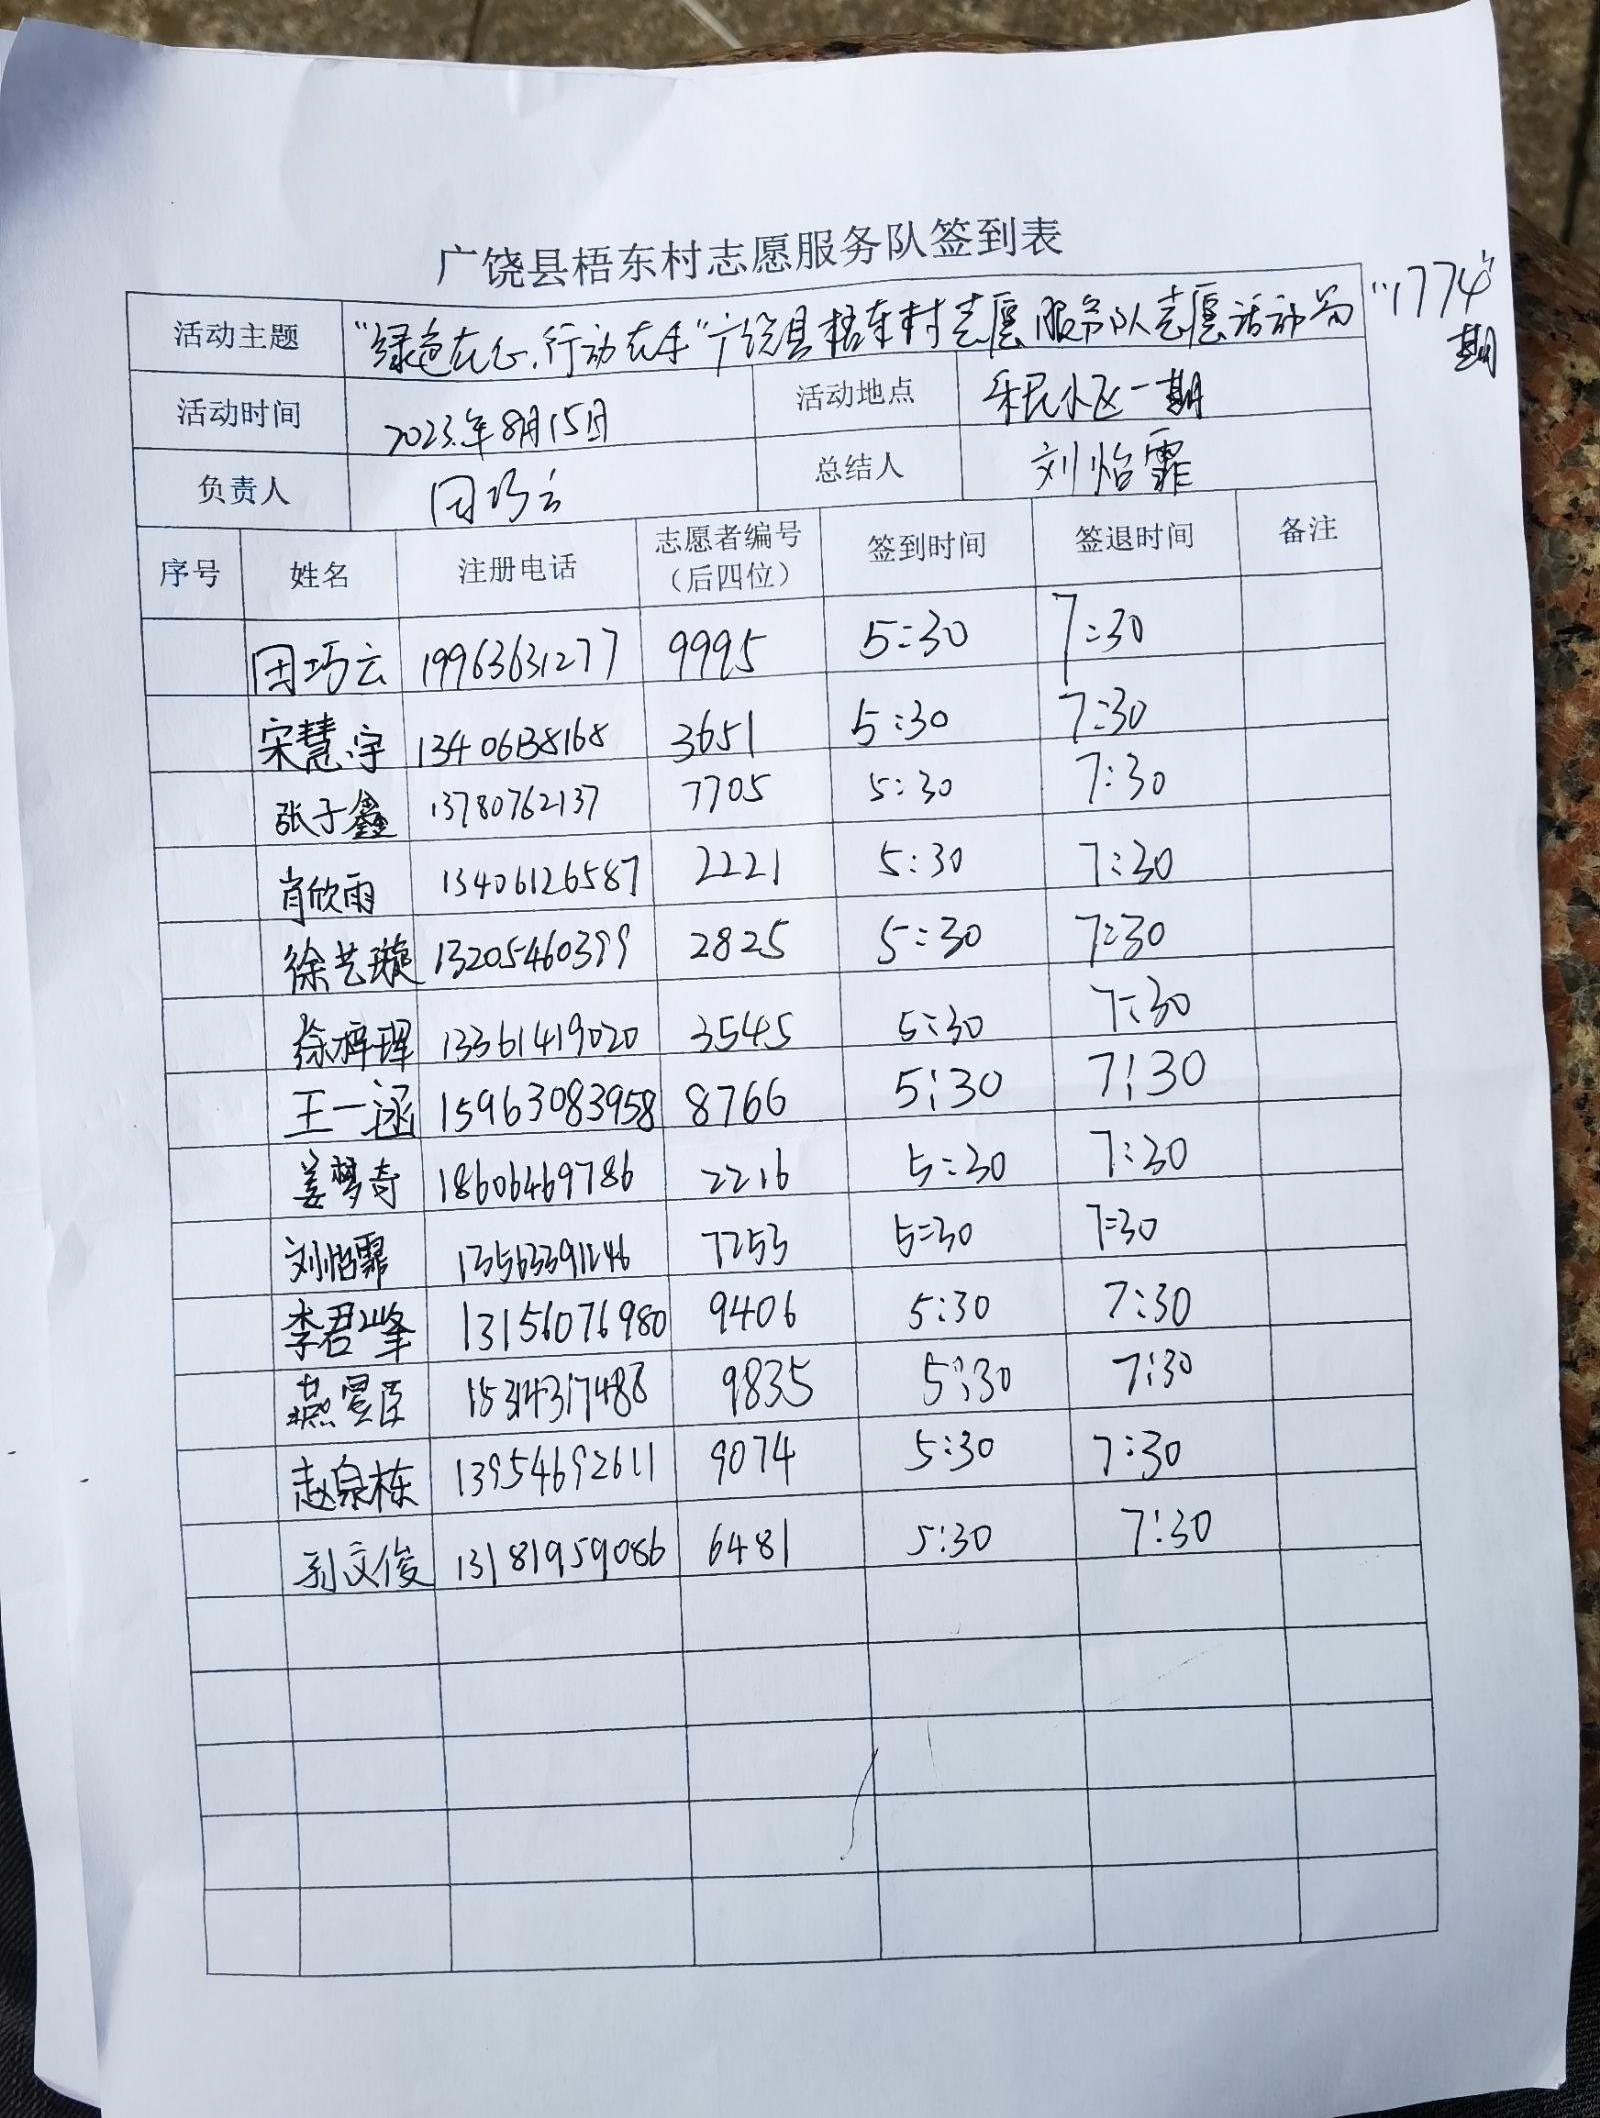 广饶县梧东村志愿服务队签到表
活动主题 "绿色在心,行动在手"广饶县梧东村志愿服务队志愿活动第"1774"期
活动时间 2023年8月15日 活动地点 乐民小区一期
负责人 田巧云 总结人 刘怡霏
序号 姓名 注册电话 志愿者编号(后四位) 签到时间 签退时间 备注
田巧云 19963631277 9995 5:30 7:30
宋慧宇 13406138168 3651 5:30 7:30
张子鑫 13780762137 7705 5:30 7:30
肖欣雨 13406126587 2221 5:30 7:30
徐艺璇 13205460399 2825 5:30 7:30
徐梓珲 13361419020 3545 5:30 7:30
王一涵 15963083958 8766 5:30 7:30
姜梦奇 18606469786 2216 5:30 7:30
刘怡霏 13563391246 7253 5:30 7:30
李君峰 13156076980 9406 5:30 7:30
燕 臣 15314317488 9835 5:30 7:30
赵泉栋 13954692611 9074 5:30 7:30
孙文俊 13181959086 6481 5:30 7:30